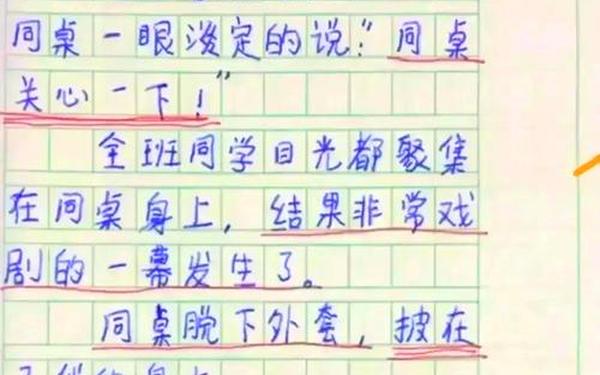 同桌一眼淡定的说："同桌
关心一下！"
全班同学目光都聚集
在同桌身上，结果非常戏
剧的一幕发生了。
同桌脱下外套，披在